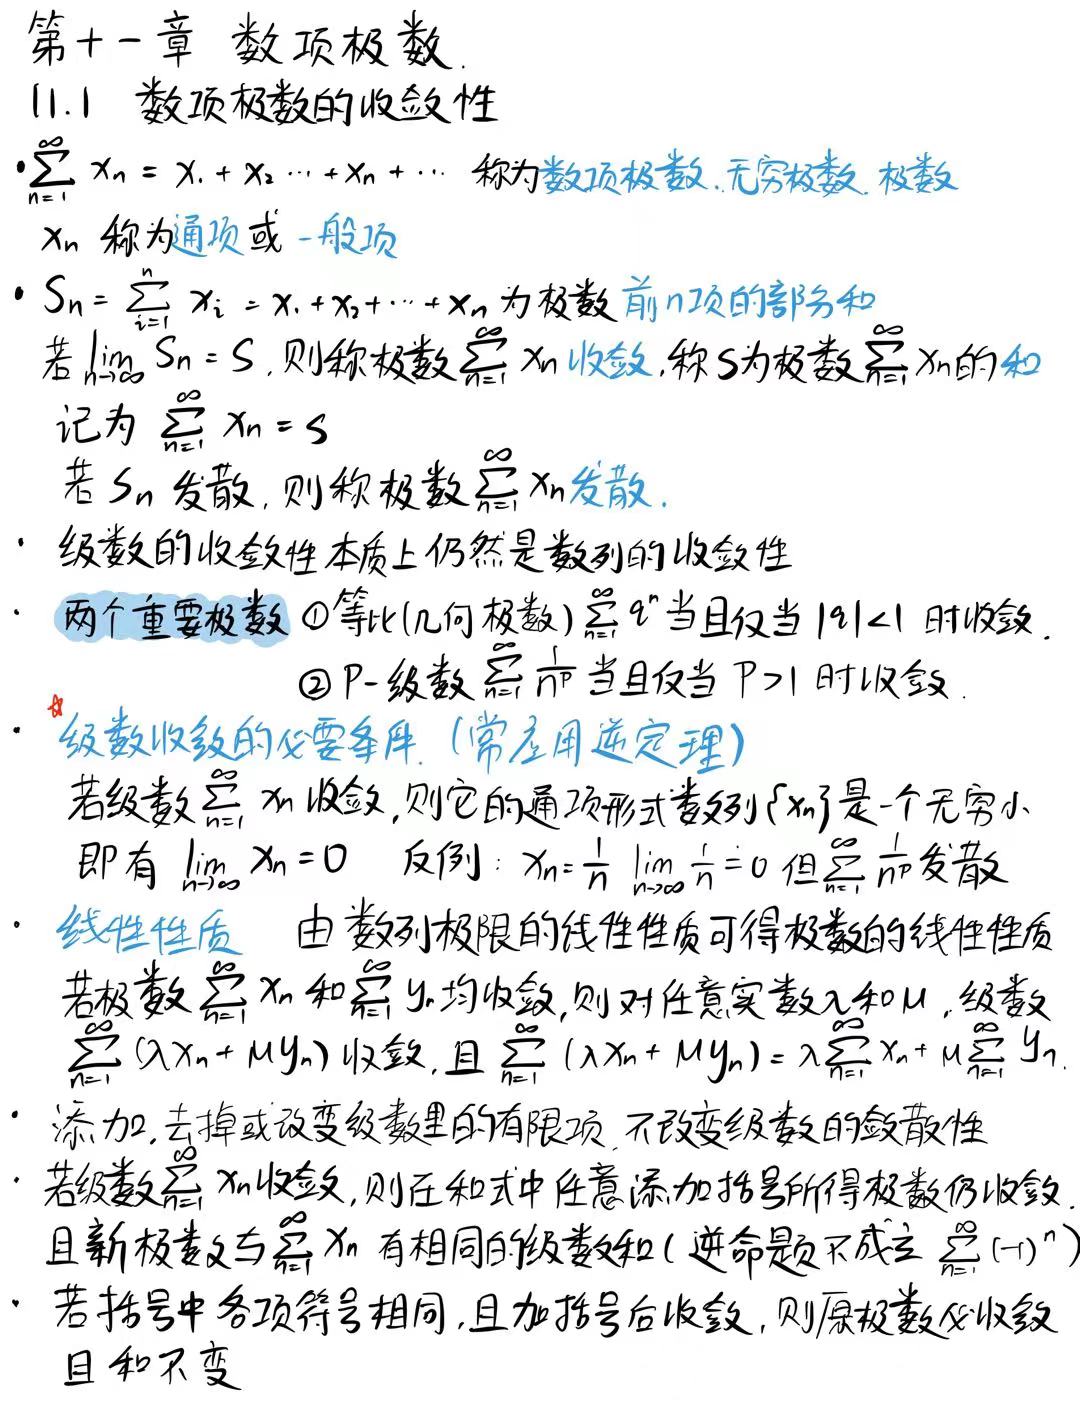 第十一章 数项极数.
11.1 数项极数的收敛性
· ∑_{n=1}^{∞} xₙ = x₁ + x₂ ⋯ + xₙ + ⋯ 称为数项极数、无穷极数、极数
xₙ 称为通项或一般项
· Sₙ = ∑_{i=1}^{n} xᵢ = x₁ + x₂ + ⋯ + xₙ 为极数前n项的部分和
若 lim_{n→∞} Sₙ = S, 则称极数 ∑_{n=1}^{∞} xₙ 收敛, 称S为极数 ∑_{n=1}^{∞} xₙ的和
记为 ∑_{n=1}^{∞} xₙ = S
若 Sₙ 发散, 则称极数 ∑_{n=1}^{∞} xₙ发散.
· 级数的收敛性本质上仍然是数列的收敛性
· 两个重要极数 ① 等比(几何极数) ∑_{n=1}^{∞} qⁿ 当且仅当 |q|<1 时收敛.
② P-级数 ∑_{n=1}^{∞} 1/nᵖ 当且仅当 P>1 时收敛.
· ☆ 级数收敛的必要条件. (常应用逆定理)
若级数 ∑_{n=1}^{∞} xₙ 收敛, 则它的通项形式数列{xₙ}是一个无穷小
即有 lim_{n→∞} xₙ = 0 反例: xₙ = 1/n lim_{n→∞} 1/n = 0 但 ∑_{n=1}^{∞} 1/nᵖ 发散
· 线性性质 由数列极限的线性性质可得极数的线性性质
若极数 ∑_{n=1}^{∞} xₙ 和 ∑_{n=1}^{∞} yₙ 均收敛, 则对任意实数λ和μ, 级数
∑_{n=1}^{∞} (λxₙ + μyₙ) 收敛, 且 ∑_{n=1}^{∞} (λxₙ + μyₙ) = λ∑_{n=1}^{∞} xₙ + μ∑_{n=1}^{∞} yₙ.
· 添加, 去掉或改变级数里的有限项, 不改变级数的敛散性
· 若级数 ∑_{n=1}^{∞} xₙ收敛, 则在和式中任意添加括号所得极数仍收敛.
且新极数与 ∑_{n=1}^{∞} xₙ 有相同的级数和 ( 逆命题不成立 ∑_{n=1}^{∞} (-1)ⁿ )
· 若括号中各项符号相同, 且加括号后收敛, 则原极数必收敛
且和不变